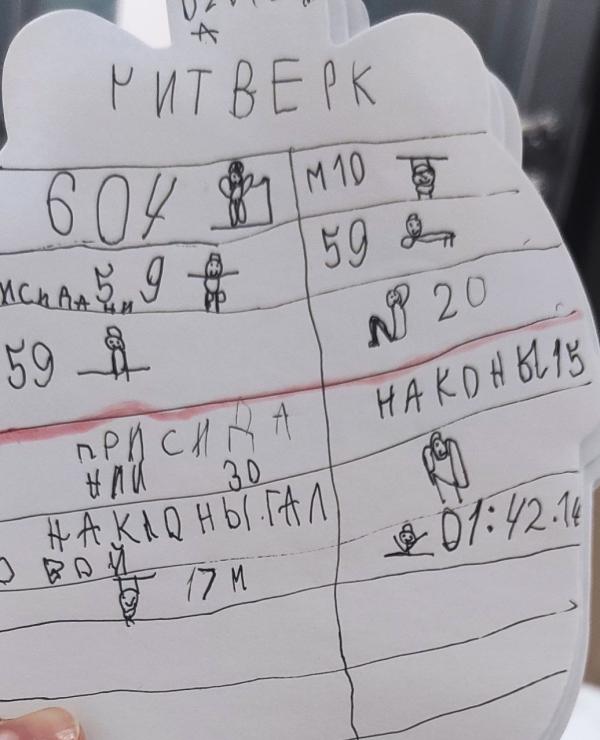 ЧИТВЕРК
604
59
59
ПРИСИДА
НИИ 30
НАКЛОНЫ.ГАЛ
ВОЙ
17 М
М10
59
20
НАКОНЫ 15
01:42.14